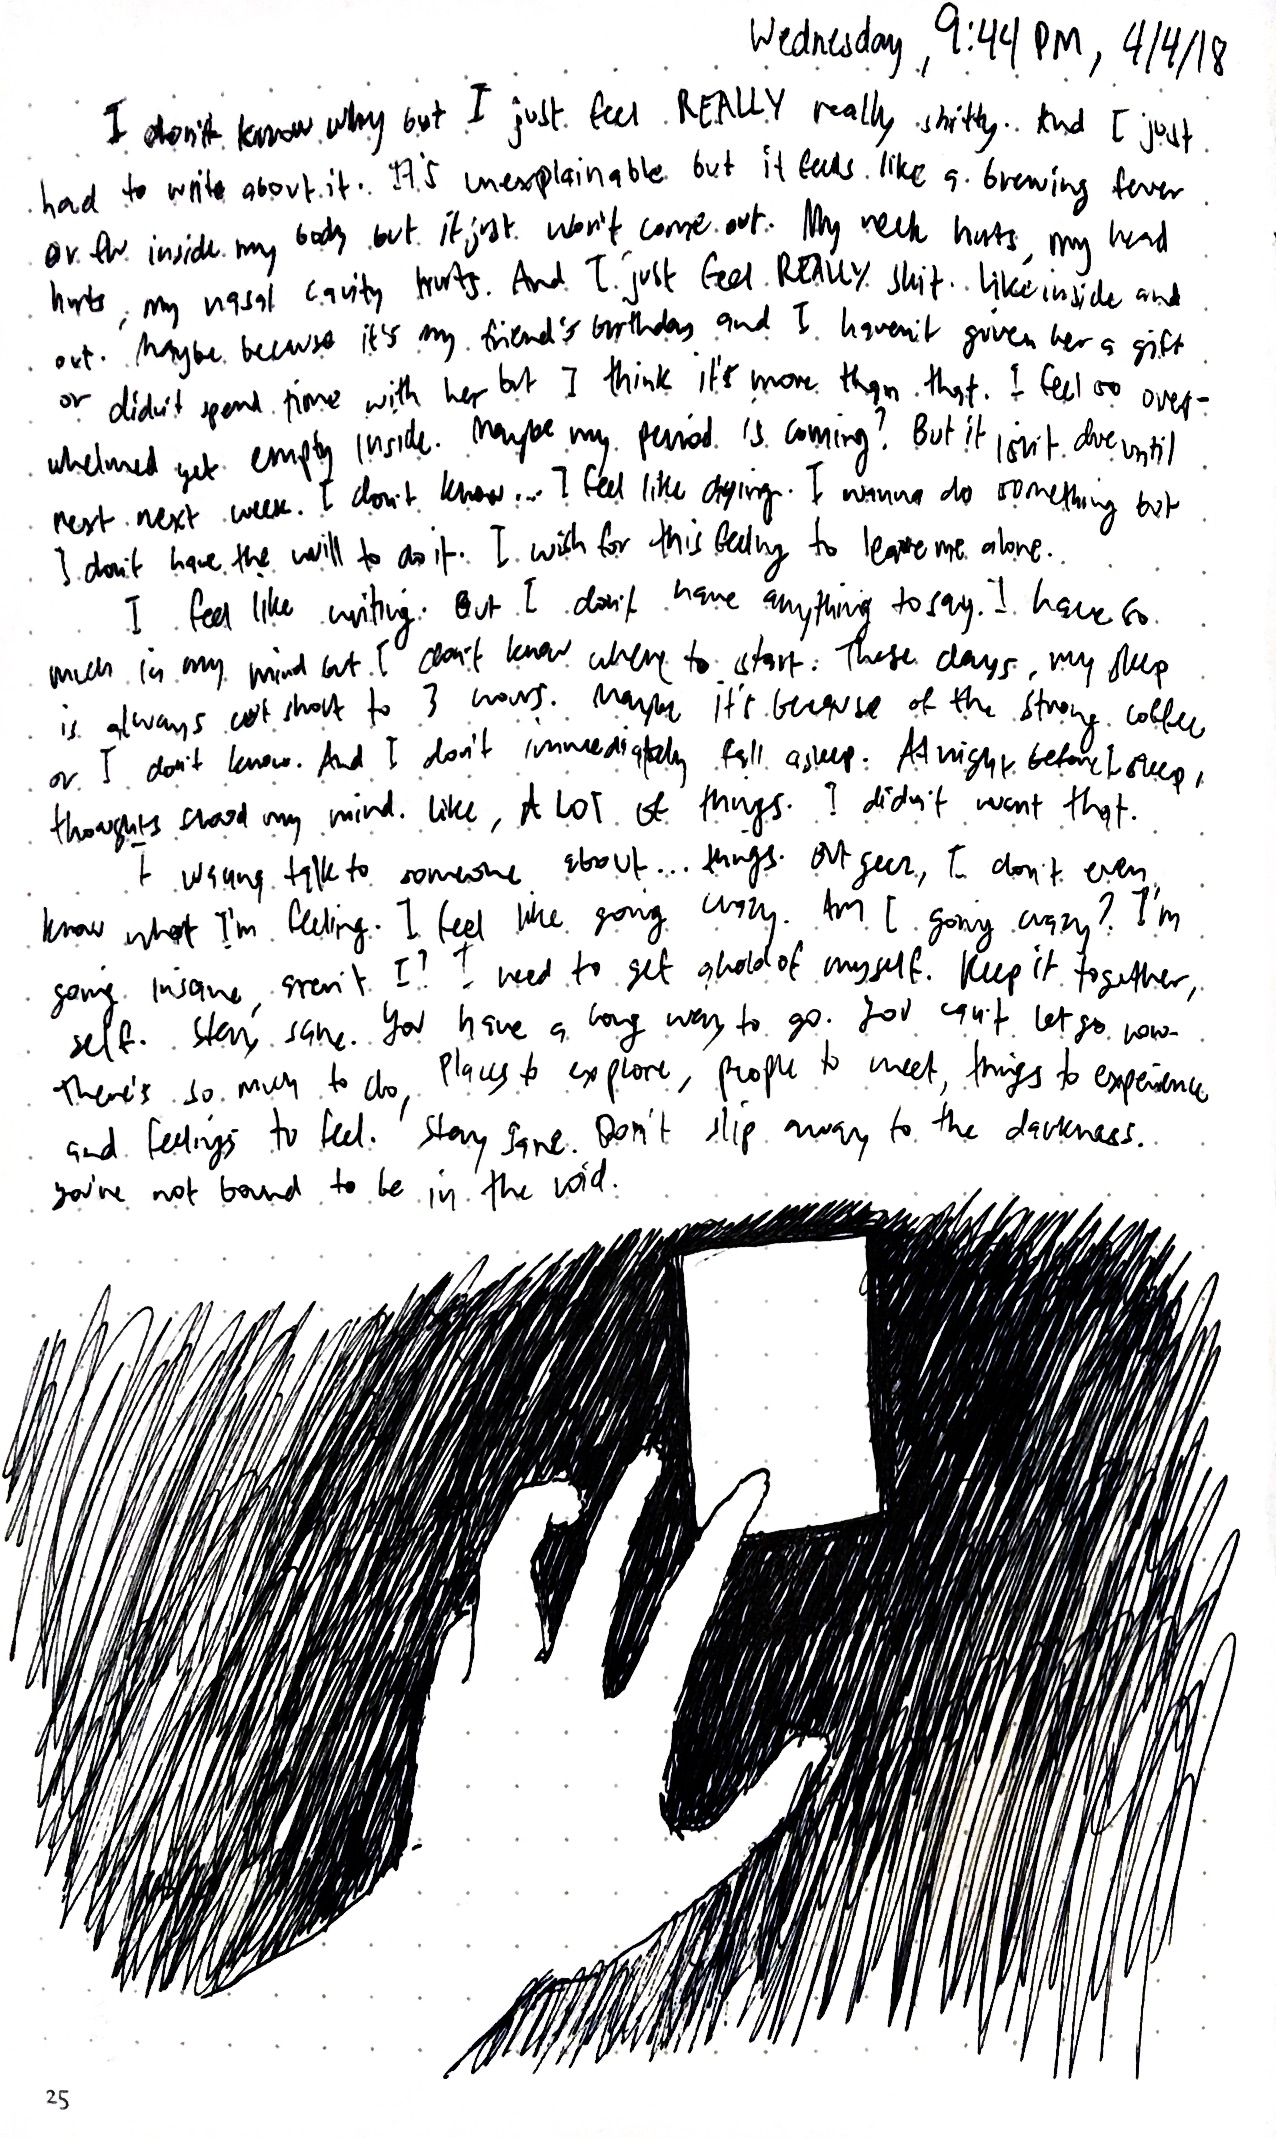 Wednesday, 9:44 PM, 4/4/18
I don't know why but I just feel REALLY really shitty. And I just
had to write about it. It's unexplainable but it feels like a brewing fever
or flu inside my body but it just won't come out. My neck hurts, my head
hurts, my nasal cavity hurts. And I just feel REALLY shit. Like inside and
out. Maybe because it's my friend's birthday and I haven't given her a gift
or didn't spend time with her but I think it's more than that. I feel so over-
whelmed yet empty inside. Maybe my period is coming? But it isn't due until
next next week. I don't know... I feel like dying. I wanna do something but
I don't have the will to do it. I wish for this feeling to leave me alone.
I feel like writing. But I don't have anything to say. I have so
much in my mind but I don't know where to start. These days, my sleep
is always cut short to 3 hours. Maybe it's because of the strong coffee
or I don't know. And I don't immediately fall asleep. At night before I sleep,
thoughts my mind. Like, A LOT OF things. I didn't want that.
I wanna talk to someone about... things. But geez, I don't even
know what I'm feeling. I feel like going crazy. Am I going crazy? I'm
going insane, aren't I? I need to get ahold of myself. Keep it together,
self. Stay sane. You have a long way to go. You can't let go now.
There's so much to do, places to explore, people to meet, things to experience
and feelings to feel. Stay sane. Don't slip away to the darkness.
You're not bound to be in the void.
25